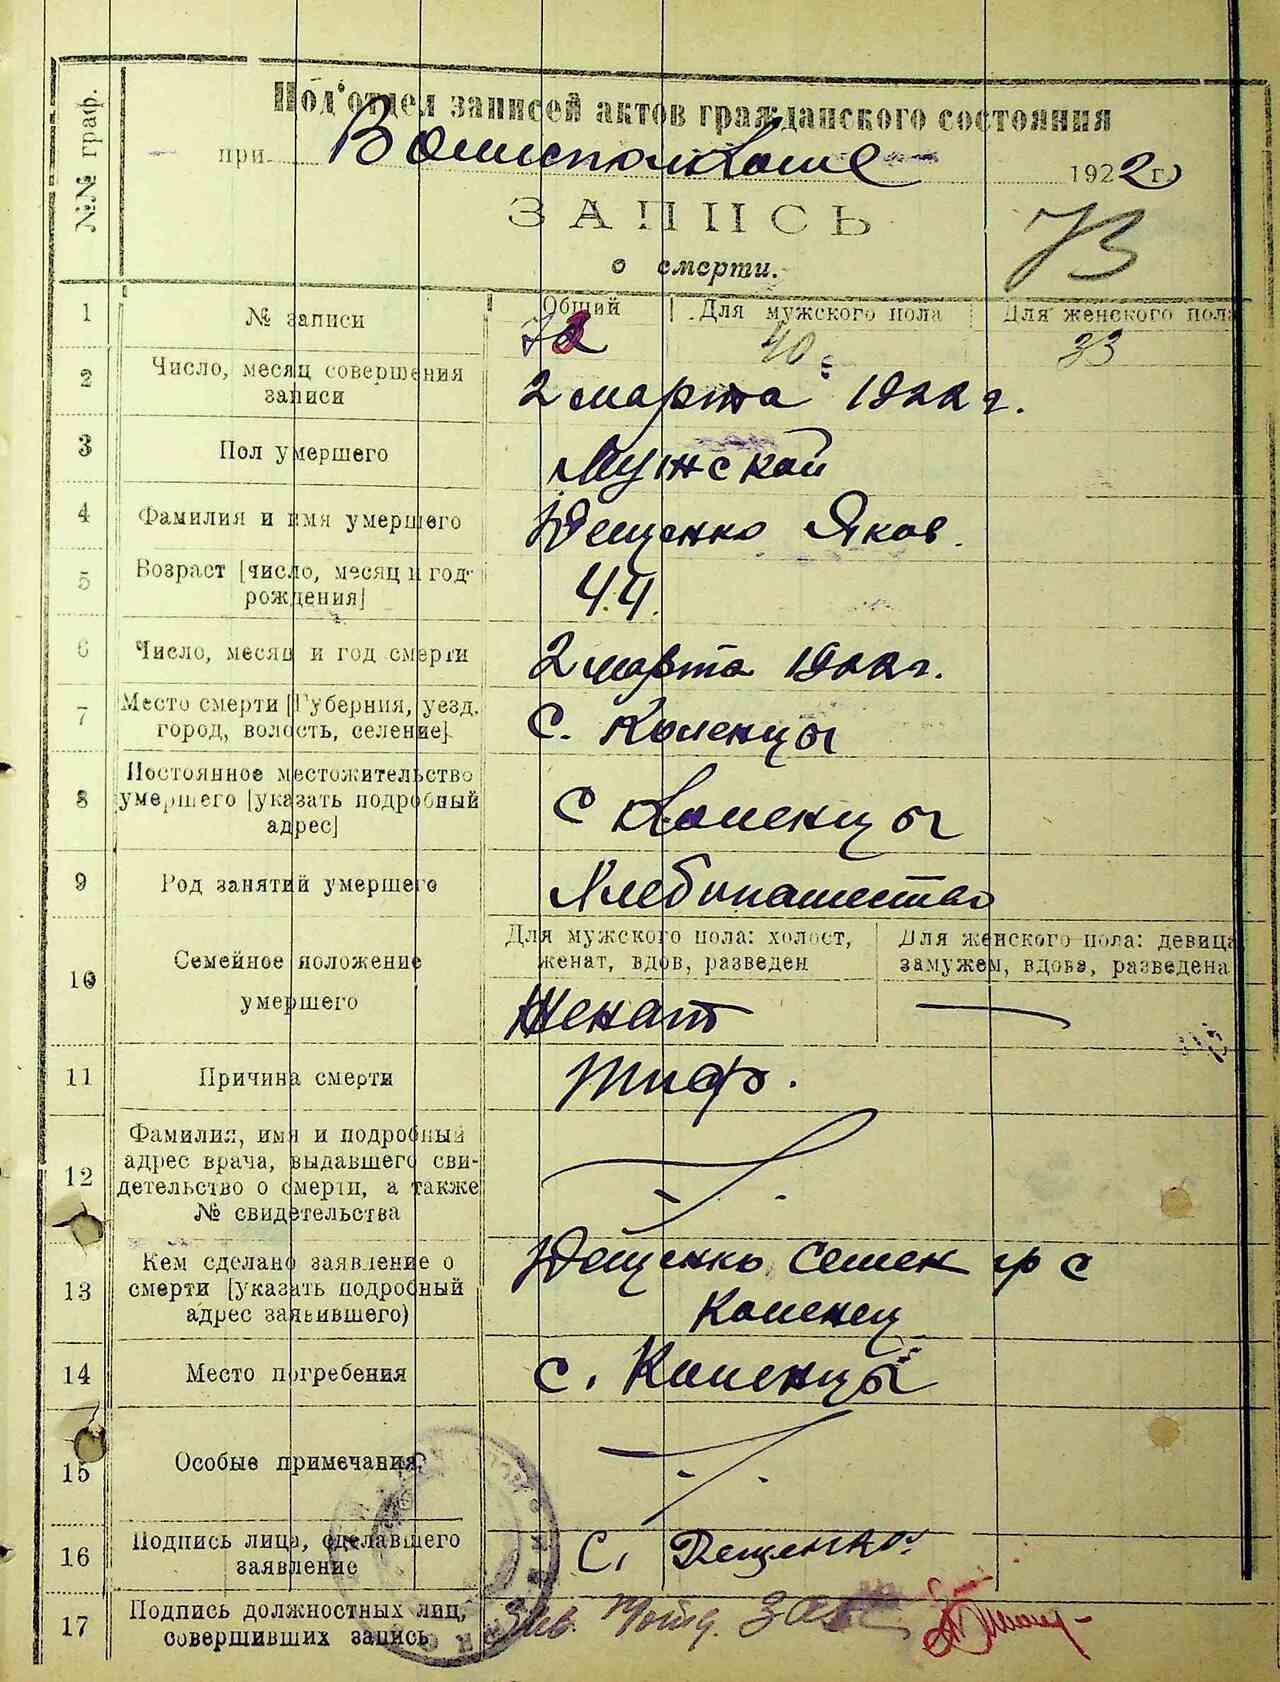 №№ граф.
Под'отдел записей актов гражданского состояния
при Волисполкоме 1922 г.
73
ЗАПИСЬ
о смерти.
1 № записи Общий Для мужского пола Для женского пола
40 33
2 Число, месяц совершения
записи
2 марта 1922 г.
3 Пол умершего Мужской
4 Фамилия и имя умершего Ющенко Яков.
5 Возраст [число, месяц и год
рождения]
44.
6 Число, месяц и год смерти 2 марта 1922 г.
7 Место смерти [Губерния, уезд,
город, волость, селение].
с.
8 Постоянное местожительство
умершего [указать подробный
адрес]
с
9 Род занятий умершего Хлебопашество
10 Семейное положение
умершего
Для мужского пола: холост,
женат, вдов, разведен
Для женского пола: девица,
замужем, вдова, разведена
Женат —
11 Причина смерти Тиф.
12 Фамилия, имя и подробный
адрес врача, выдавшего сви-
детельство о смерти, а также
№ свидетельства
13 Кем сделано заявление о
смерти [указать подробный
адрес заявившего)
Ющенко Семен гр с
14 Место погребения с.
15 Особые примечания.
16 Подпись лица, сделавшего
заявление
С.
17 Подпись должностных лиц,
совершивших запись
Зав.